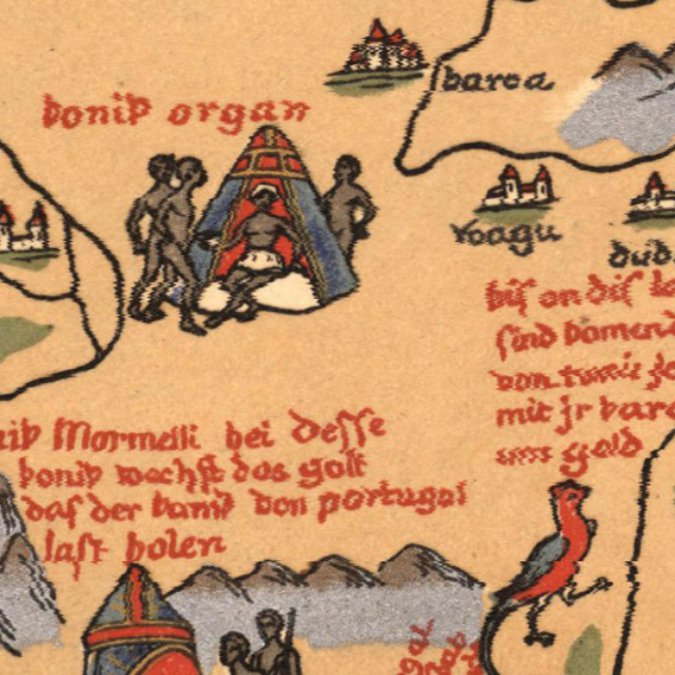 konig organ
barca
voagu
bis an dis
sind komen
von tunis
mit jr
um gold
Mormelli bei desse
konig wechst das golt
das der konig von portugal
last holen